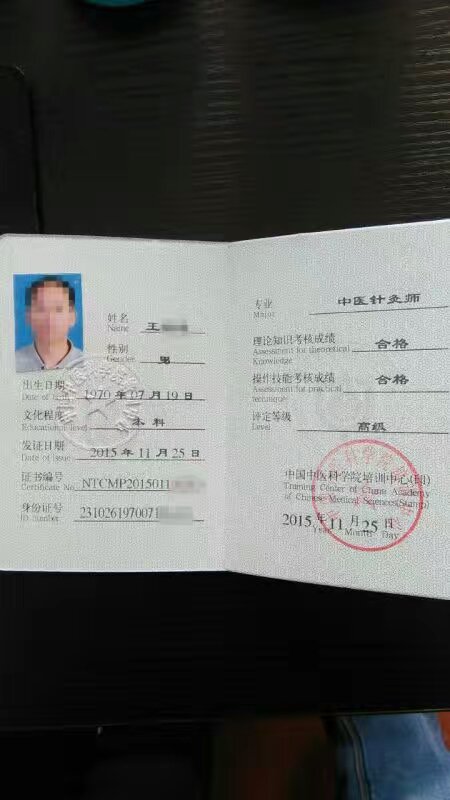 姓名
Name 王
性别
Gender 男
出生日期
Date of 1970 年 07 月 19 日
文化程度
Educational level 本科
发证日期
Date of issue 2015 年 11 月 25 日
证书编号
Certificate No NTCMP2015011
身份证号
ID number 2310261970071
专业
Major 中医针灸师
理论知识考核成绩
Assessment for theoretical
Knowledge 合格
操作技能考核成绩
Assessment for practical
technique 合格
评定等级
Level 高级
中国中医科学院培训中心(印)
Training Center of China Academy
of Chinese Medical Sciences(Stamp)
2015 年 11 月 25 日
Year Month Day